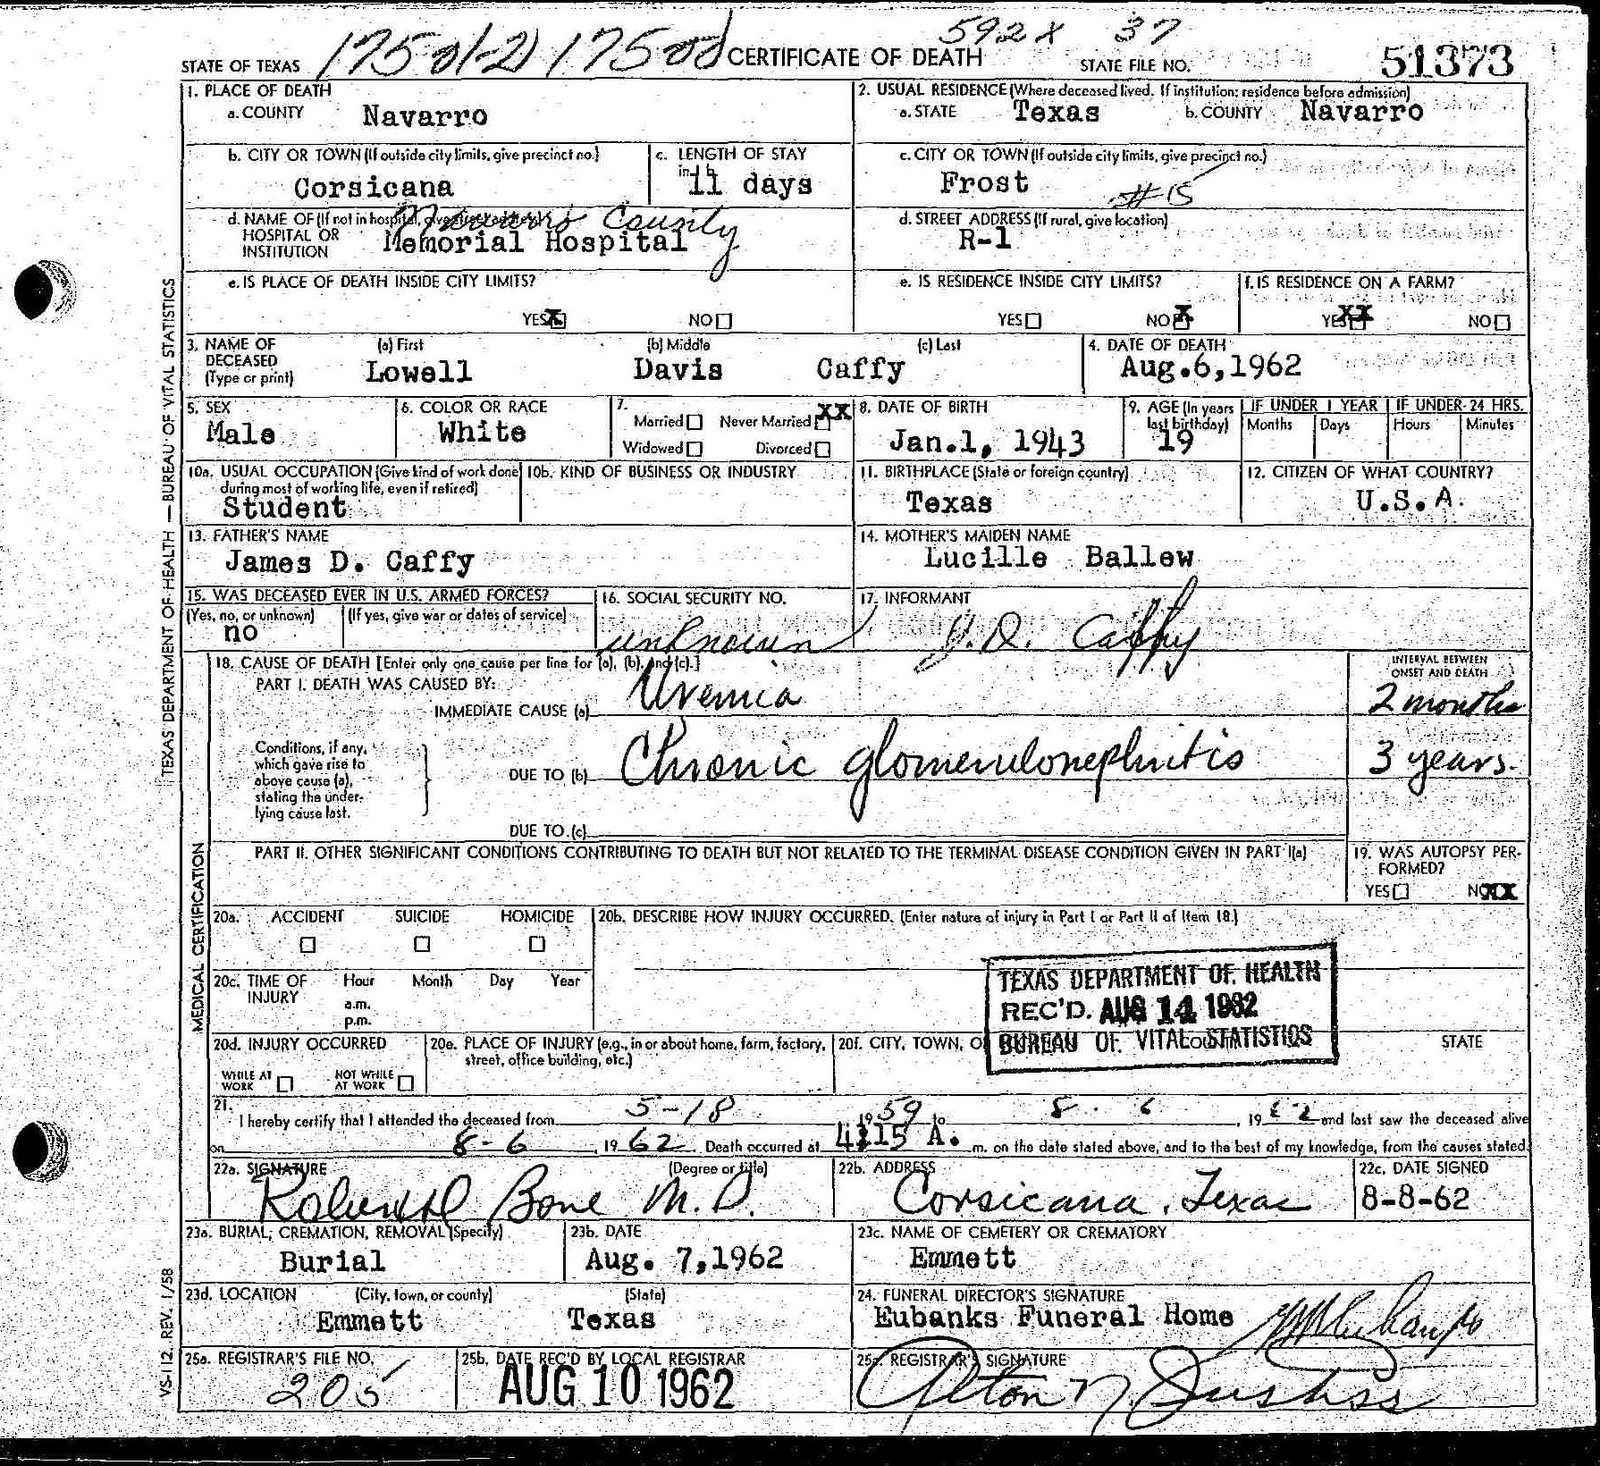 592x 37
STATE OF TEXAS CERTIFICATE OF DEATH STATE FILE NO. 51373
1. PLACE OF DEATH
a. COUNTY Navarro
2. USUAL RESIDENCE (Where deceased lived. If institution: residence before admission)
a. STATE Texas b. COUNTY Navarro
b. CITY OR TOWN (If outside city limits, give precinct no.)
Corsicana
c. LENGTH OF STAY
11 days
c. CITY OR TOWN (If outside city limits, give precinct no.)
Frost #15
d. NAME OF (If not in hospital, give street address)
HOSPITAL OR
INSTITUTION
Navarro County
Memorial Hospital
d. STREET ADDRESS (If rural, give location)
R-1
e. IS PLACE OF DEATH INSIDE CITY LIMITS?
YES X NO
e. IS RESIDENCE INSIDE CITY LIMITS?
YES NO X
f. IS RESIDENCE ON A FARM?
YES XX NO
3. NAME OF
DECEASED
(Type or print)
(a) First (b) Middle (c) Last
Lowell Davis Caffy
4. DATE OF DEATH
Aug.6,1962
5. SEX
Male
6. COLOR OR RACE
White
7.
Married Never Married XX
Widowed Divorced
8. DATE OF BIRTH
Jan.1, 1943
9. AGE (In years
last birthday)
19
IF UNDER 1 YEAR
Months Days
IF UNDER 24 HRS.
Hours Minutes
10a. USUAL OCCUPATION (Give kind of work done
during most of working life, even if retired)
Student
10b. KIND OF BUSINESS OR INDUSTRY
11. BIRTHPLACE (State or foreign country)
Texas
12. CITIZEN OF WHAT COUNTRY?
U.S.A.
13. FATHER'S NAME
James D. Caffy
14. MOTHER'S MAIDEN NAME
Lucille Ballew
15. WAS DECEASED EVER IN U.S. ARMED FORCES?
(Yes, no, or unknown) (If yes, give war or dates of service)
no
16. SOCIAL SECURITY NO.
unknown
17. INFORMANT
J.D. Caffy
18. CAUSE OF DEATH [Enter only one cause per line for (a), (b), and (c).]
PART I. DEATH WAS CAUSED BY:
IMMEDIATE CAUSE (a) Uremia
INTERVAL BETWEEN
ONSET AND DEATH
2 months
Conditions, if any,
which gave rise to
above cause (a),
stating the under-
lying cause last.
DUE TO (b) Chronic glomerulonephritis
3 years.
DUE TO (c)
PART II. OTHER SIGNIFICANT CONDITIONS CONTRIBUTING TO DEATH BUT NOT RELATED TO THE TERMINAL DISEASE CONDITION GIVEN IN PART I(a)
19. WAS AUTOPSY PER-
FORMED?
YES NO XX
20a. ACCIDENT SUICIDE HOMICIDE
20b. DESCRIBE HOW INJURY OCCURRED. (Enter nature of injury in Part I or Part II of Item 18.)
20c. TIME OF
INJURY
Hour Month Day Year
a.m.
p.m.
TEXAS DEPARTMENT OF HEALTH
REC'D. AUG 14 1962
BUREAU OF VITAL STATISTICS
20d. INJURY OCCURRED
WHILE AT
WORK
NOT WHILE
AT WORK
20e. PLACE OF INJURY (e.g., in or about home, farm, factory,
street, office building, etc.)
20f. CITY, TOWN, STATE
21.
I hereby certify that I attended the deceased from 5-18 1959 to 8-6, 1962 and last saw the deceased alive
on 8-6, 1962. Death occurred at 4:15 A.m. on the date stated above, and to the best of my knowledge, from the causes stated.
22a. SIGNATURE (Degree or title)
Bone M.D.
22b. ADDRESS
Corsicana, Texas
22c. DATE SIGNED
8-8-62
23a. BURIAL, CREMATION, REMOVAL (Specify)
Burial
23b. DATE
Aug. 7,1962
23c. NAME OF CEMETERY OR CREMATORY
Emmett
23d. LOCATION (City, town, or county) (State)
Emmett Texas
24. FUNERAL DIRECTOR'S SIGNATURE
Eubanks Funeral Home
25a. REGISTRAR'S FILE NO.
205
25b. DATE REC'D BY LOCAL REGISTRAR
AUG 10 1962
25c. REGISTRAR'S SIGNATURE
Alton N. Justiss
TEXAS DEPARTMENT OF HEALTH — BUREAU OF VITAL STATISTICS
MEDICAL CERTIFICATION
VS-12. REV. 1/58